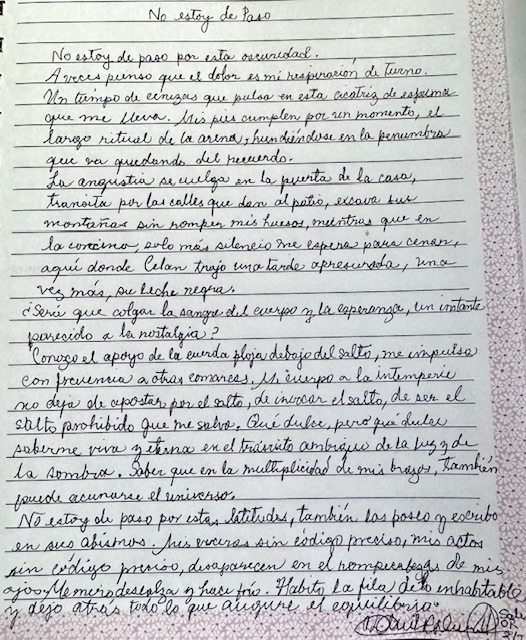 No estoy de Paso
No estoy de paso por esta oscuridad.
A veces pienso que el dolor es mi respiración de turno.
Un tiempo de cenizas que pulsa en esta cicatriz de espuma
que me lleva. Mis pies cumplen por un momento, el
largo ritual de la arena, hundiéndose en la penumbra
que va quedando del recuerdo.
La angustia se cuelga en la puerta de la casa,
transita por las calles que dan al patio, excava sus
montañas sin romper mis huesos, mientras que en
la cocina, solo más silencio me espera para cenar,
aquí donde Celan trajo una tarde apresurada, una
vez más, su leche negra.
¿Será que colgar la sangre del cuerpo y la esperanza, un instante
parecido a la nostalgia?
Conozco el apoyo de la cuerda floja debajo del salto, me impulsa
con frecuencia a otras comarcas. Mi cuerpo a la intemperie
no deja de apostar por el salto, de invocar el salto, de ser el
salto prohibido que me salva. Qué dulce, pero qué dulce
saberme viva y eterna en el tránsito ambiguo de la luz y de
la sombra. Saber que en la multiplicidad de mis brazos, también
puede acunarse el universo.
No estoy de paso por estas latitudes, también las poseo y escribo
en sus abismos. Mis voceras sin código preciso, mis actos
sin código preciso, desaparecen en el rompecabezas de mis
ojos. Me miro descalza y hace frío. Habito la fila de lo inhabitable
y dejo atrás todo lo que augure el equilibrio.